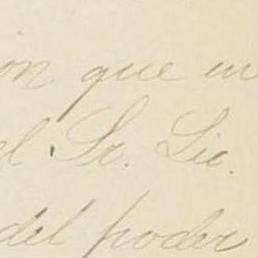 on que in
el Sr. Lic.
del poder